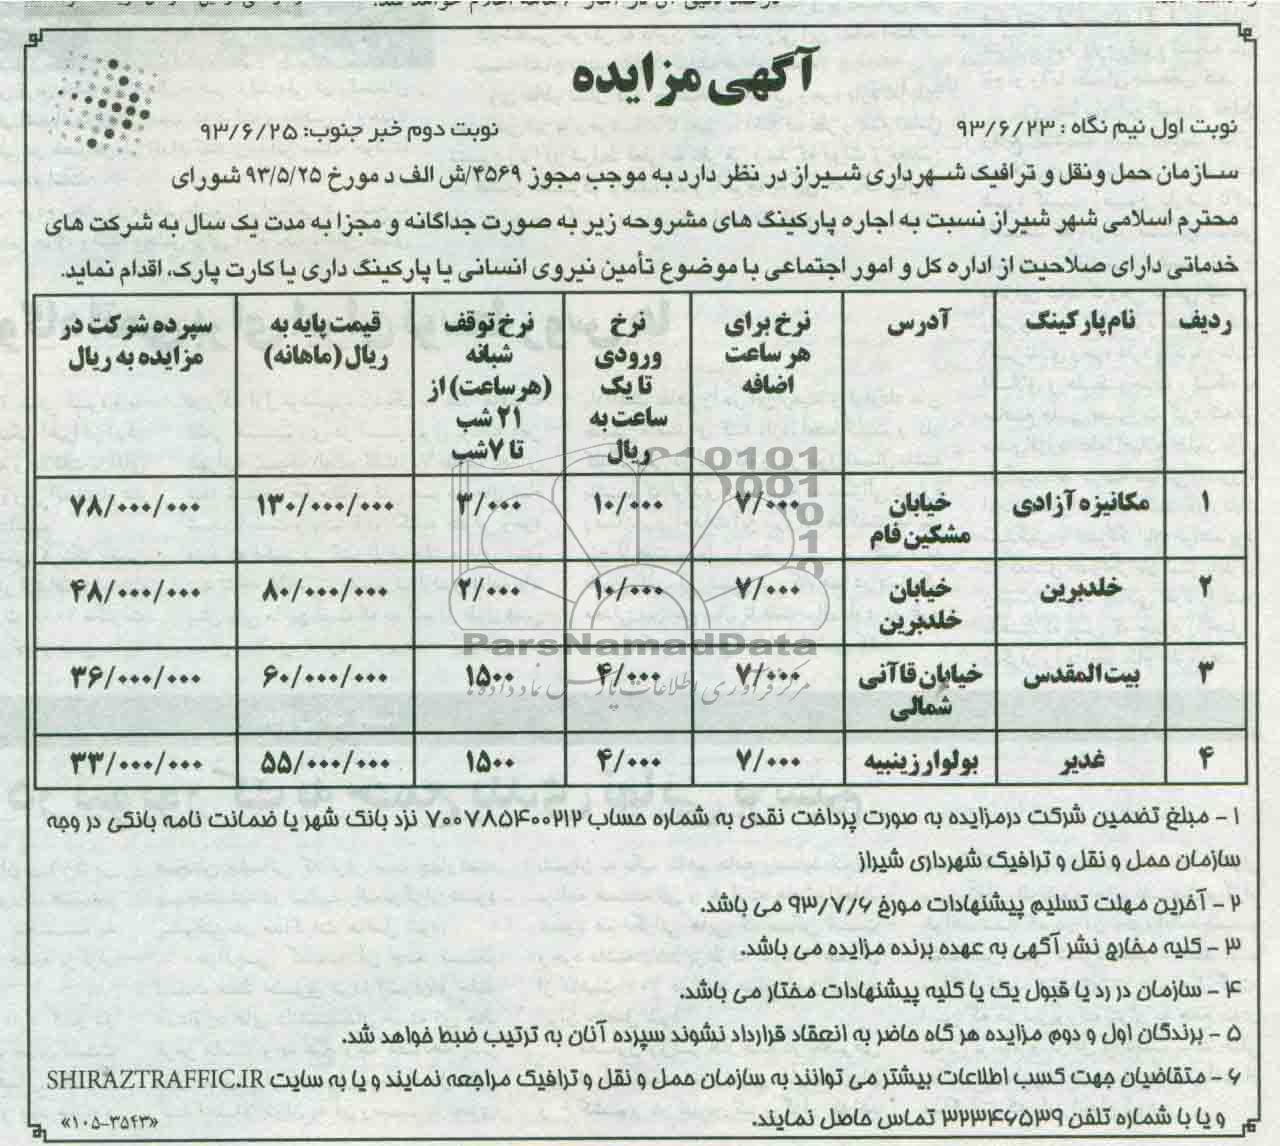 آگهی مزایده
نوبت اول نیم نگاه : ۹۳/۶/۲۳ نوبت دوم خبر جنوب: ۹۳/۶/۲۵
سازمان حمل ونقل و ترافیک شهرداری شیراز در نظر دارد به موجب مجوز ۴۵۶۹/ش الف د مورخ ۹۳/۵/۲۵ شورای
محترم اسلامی شهر شیراز نسبت به اجاره پارکینگ های مشروحه زیر به صورت جداگانه و مجزا به مدت یک سال به شرکت های
خدماتی دارای صلاحیت از اداره کل و امور اجتماعی با موضوع تأمین نیروی انسانی یا پارکینگ داری یا کارت پارک، اقدام نماید.
ردیف نام پارکینگ آدرس نرخ برای هر ساعت اضافه نرخ ورودی تا یک ساعت به ریال نرخ توقف شبانه (هر ساعت) از ۲۱ شب تا ۷ شب قیمت پایه به ریال (ماهانه) سپرده شرکت در مزایده به ریال
۱ مکانیزه آزادی خیابان مشکین فام ۷/۰۰۰ ۱۰/۰۰۰ ۳/۰۰۰ ۱۳۰/۰۰۰/۰۰۰ ۷۸/۰۰۰/۰۰۰
۲ خلدبرین خیابان خلدبرین ۷/۰۰۰ ۱۰/۰۰۰ ۲/۰۰۰ ۸۰/۰۰۰/۰۰۰ ۴۸/۰۰۰/۰۰۰
۳ بیت المقدس خیابان قاآنی شمالی ۷/۰۰۰ ۴/۰۰۰ ۱۵۰۰ ۶۰/۰۰۰/۰۰۰ ۳۶/۰۰۰/۰۰۰
۴ غدیر بولوار زینبیه ۷/۰۰۰ ۴/۰۰۰ ۱۵۰۰ ۵۵/۰۰۰/۰۰۰ ۳۳/۰۰۰/۰۰۰
ParsNamadData
مرکز فرآوری اطلاعات پارس نماد داده ها
۱ - مبلغ تضمین شرکت درمزایده به صورت پرداخت نقدی به شماره حساب ۷۰۰۷۸۵۴۰۰۲۱۲ نزد بانک شهر یا ضمانت نامه بانکی در وجه
سازمان حمل و نقل و ترافیک شهرداری شیراز
۲ - آخرین مهلت تسلیم پیشنهادات مورخ ۹۳/۷/۶ می باشد.
۳ - کلیه مخارج نشر آگهی به عهده برنده مزایده می باشد.
۴ - سازمان در رد یا قبول یک یا کلیه پیشنهادات مختار می باشد.
۵ - برندگان اول و دوم مزایده هر گاه حاضر به انعقاد قرارداد نشوند سپرده آنان به ترتیب ضبط خواهد شد.
۶ - متقاضیان جهت کسب اطلاعات بیشتر می توانند به سازمان حمل و نقل و ترافیک مراجعه نمایند و یا به سایت SHIRAZTRAFFIC.IR
و یا با شماره تلفن ۳۲۳۴۶۵۳۹ تماس حاصل نمایند.
«۱۰۵-۳۵۴۳»